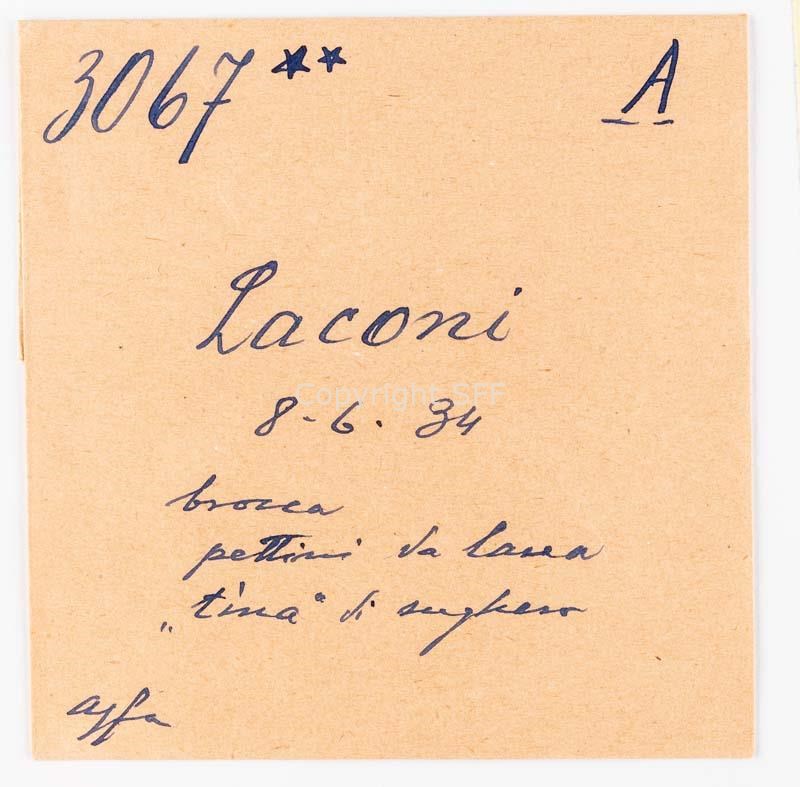 3067 ** A
Laconi
Copyright SFF
8-6.34
brocca
pettini da lana
„tina" di sughero
agfa